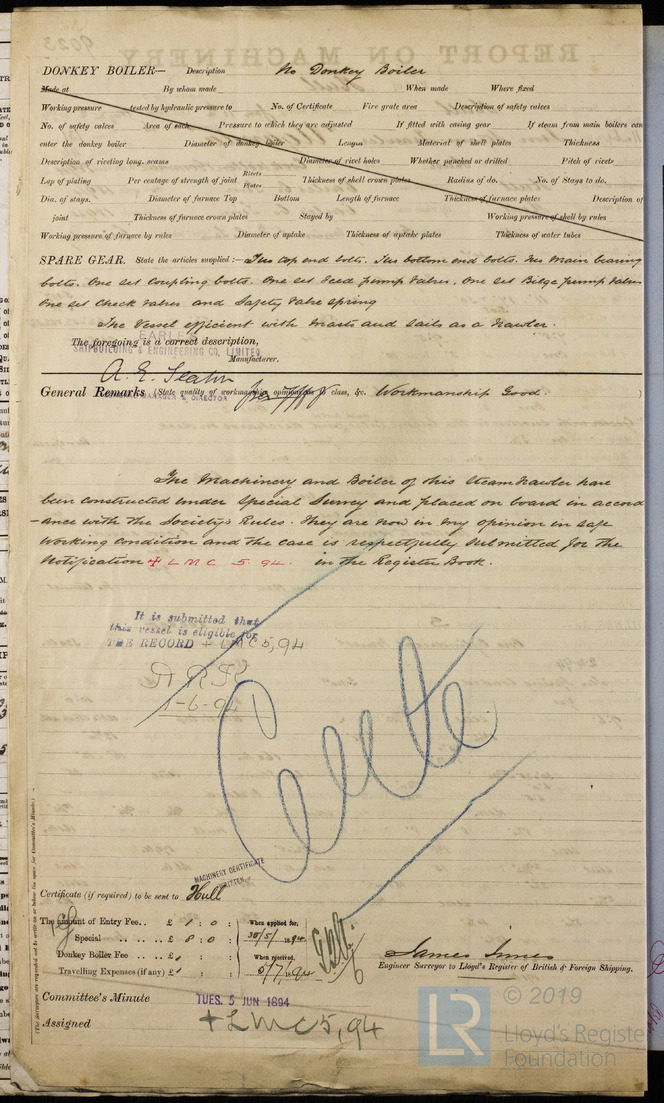 REPORT ON MACHINERY
9023
DONKEY BOILER— Description No Donkey Boiler
Made at By whom made When made Where fixed
Working pressure tested by hydraulic pressure to No. of Certificate Fire grate area Description of safety valves
No. of safety valves Area of each Pressure to which they are adjusted If fitted with easing gear If steam from main boilers can
enter the donkey boiler Diameter of donkey boiler Length Material of shell plates Thickness
Description of riveting long. seams Diameter of rivet holes Whether punched or drilled Pitch of rivets
Lap of plating Per centage of strength of joint Rivets Plates Thickness of shell crown plates Radius of do. No. of Stays to do.
Dia. of stays. Diameter of furnace Top Bottom Length of furnace Thickness of furnace plates Description of
joint Thickness of furnace crown plates Stayed by Working pressure of shell by rules
Working pressure of furnace by rules Diameter of uptake Thickness of uptake plates Thickness of water tubes
SPARE GEAR. State the articles supplied :— Two top end bolts. Two bottom end bolts. Two main bearing
bolts. One set coupling bolts. One set Feed pump valves. One set Bilge pump valves
One set Check valves and Safety valve spring
The Vessel efficient with masts and sails as a trawler.
The foregoing is a correct description,
EARLE'S
SHIPBUILDING & ENGINEERING CO, LIMITED
Manufacturer.
A. E. Seaton
MANAGER & DIRECTOR
General Remarks (State quality of workmanship, opinions as to class, &c. Workmanship Good.
The Machinery and Boiler of this steam trawler have
been constructed under Special Survey and placed on board in accord
-ance with the Society's Rules. They are now in my opinion in safe
working condition and the case is respectfully submitted for the
notification + L M C 5 94. in the Register Book.
It is submitted that
this vessel is eligible for
THE RECORD + LMC 5,94
1-6-94
MACHINERY CERTIFICATE
WRITTEN
Certificate (if required) to be sent to Hull
The amount of Entry Fee.. £ 1 : 0 : When applied for,
Special .. .. .. £ 8 : 0 : 30/5/1894
Donkey Boiler Fee .. £ : : When received,
Travelling Expenses (if any) £ : : 5/7/1894
James Innes
Engineer Surveyor to Lloyd's Register of British & Foreign Shipping.
Committee's Minute TUES. 5 JUN 1894
Assigned + LMC 5,94
(The Surveyors are requested not to write on or below the space for Committee's Minute.)
LR
© 2019
Lloyd's Registe
Foundation